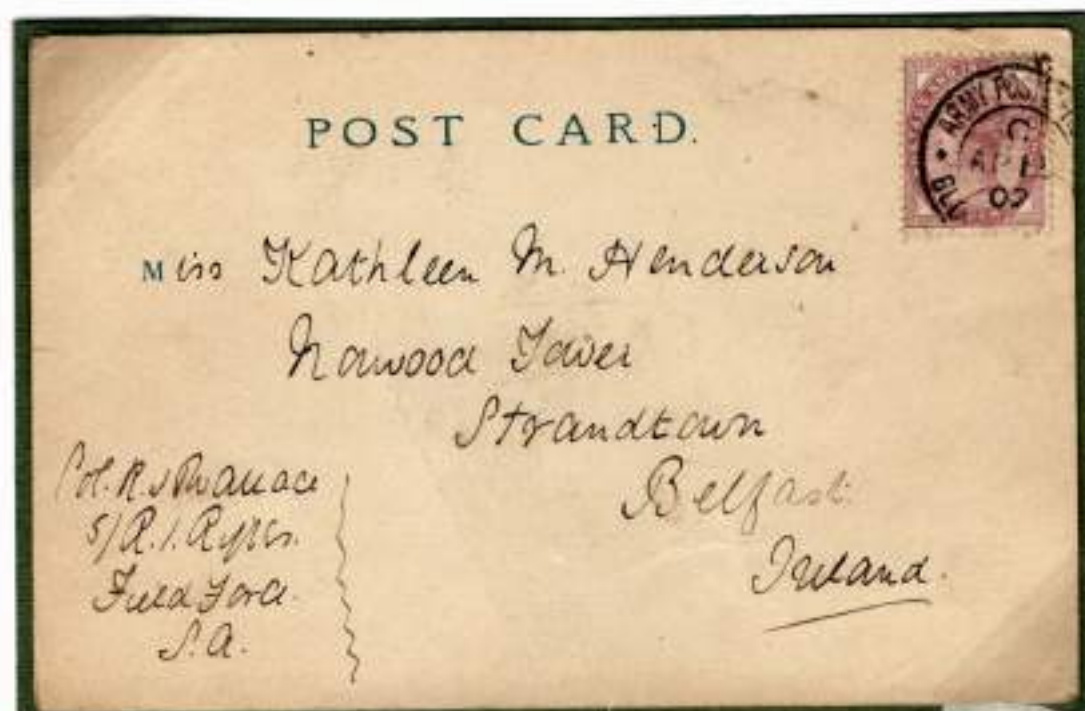 POST CARD.
ARMY POST
C
AP
02
Miss Kathleen M. Henderson
Norwood Tower
Strandtown
Belfast.
Ireland.
Col. R. Wallace
5/R.I. Rifles.
Field Force.
S.A.